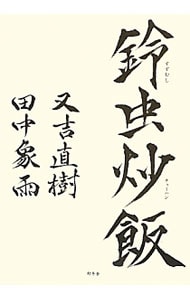 鈴虫炒飯
すずむし
チャーハン
又吉直樹
田中象雨